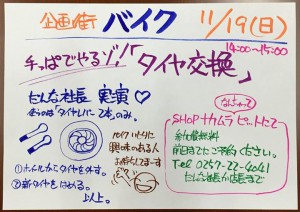 企画街 バイク 11/19(日)
14:00〜15:00
手っぱでやるゾ!「タイヤ交換」
たんな社長 実演♡
使うのは「タイヤレバー」2本のみ。
①ホイルからタイヤを外す。
②新タイヤをはめる。
以上。
バイクいじりに
興味のある人
お待ちしてまーす
なんちゃって
SHOPナカムラ ピットにて
参加費無料
前日までにご予約ください。
Tel 0257-22-4041
たんな社長か店長まで